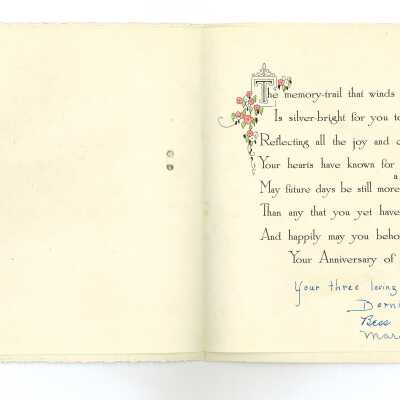 The memory-trail that winds
Is silver-bright for you to
Reflecting all the joy and
Your hearts have known for
a
May future days be still more
Than any that you yet have
And happily may you beho
Your Anniversary of
Your three loving
Berni
Bess
Mar